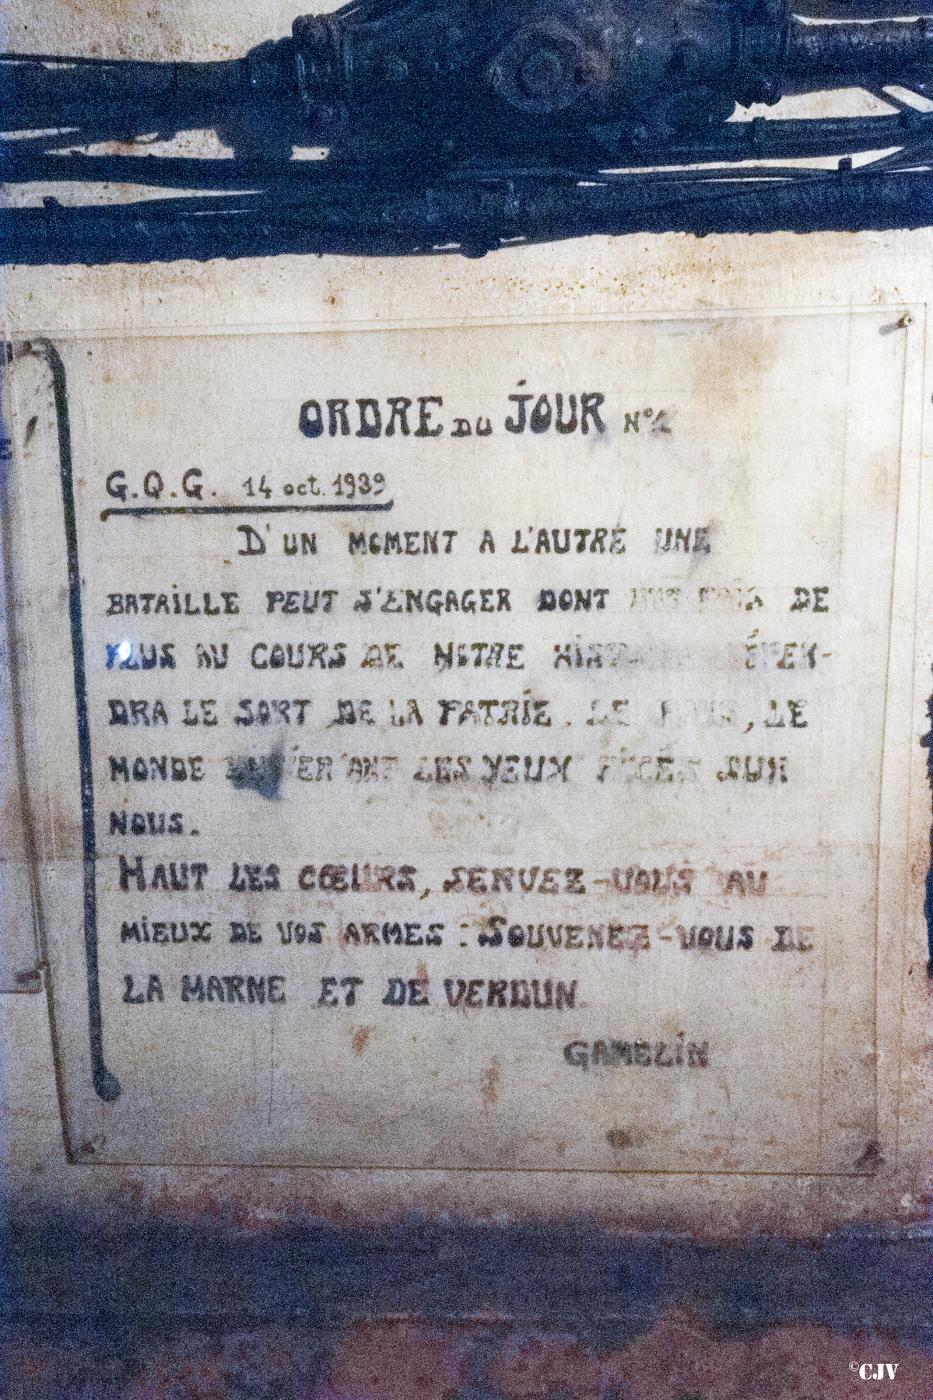 ORDRE DU JOUR N°
G.Q.G. 14 oct. 1939
D'UN MOMENT A L'AUTRE UNE
BATAILLE PEUT S'ENGAGER DONT UNE FOIS DE
PLUS AU COURS DE NOTRE HISTOIRE DÉPEN-
DRA LE SORT DE LA PATRIE. LE PAYS, LE
MONDE ENTIER ONT LES YEUX FIXÉS SUR
NOUS.
HAUT LES CŒURS, SERVEZ-VOUS AU
MIEUX DE VOS ARMES : SOUVENEZ-VOUS DE
LA MARNE ET DE VERDUN
GAMELIN
©CJV